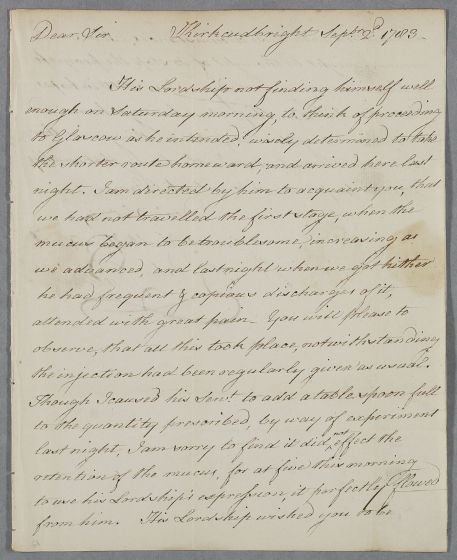 Dear Sir, Kirkcudbright Septr. 2d. 1783.
His Lordship not finding himself well
enough on Saturday morning, to think of proceeding
to Glascow as he intended, wisely determined to take
the shorter route homeward, and arrived here last
night. I am directed by him to acquaint you, that
we had not travelled the first stage, when the
mucus began to be troublesome, increasing as
we advanced, and last night when we got hither
he had frequent & copious discharges of it,
attended with great pain. You will please to
observe, that all this took place, notwithstanding
the injection had been regularly given as usual.
Though I caused his Servt. to add a table spoon full
to the quantity prescribed, by way of experiment
last night, I am sorry to find it did not effect the
retention of the mucus, for at five this morning
to use his Lordship's expression, it perfectly flowed
from him. His Lordship wished you to be